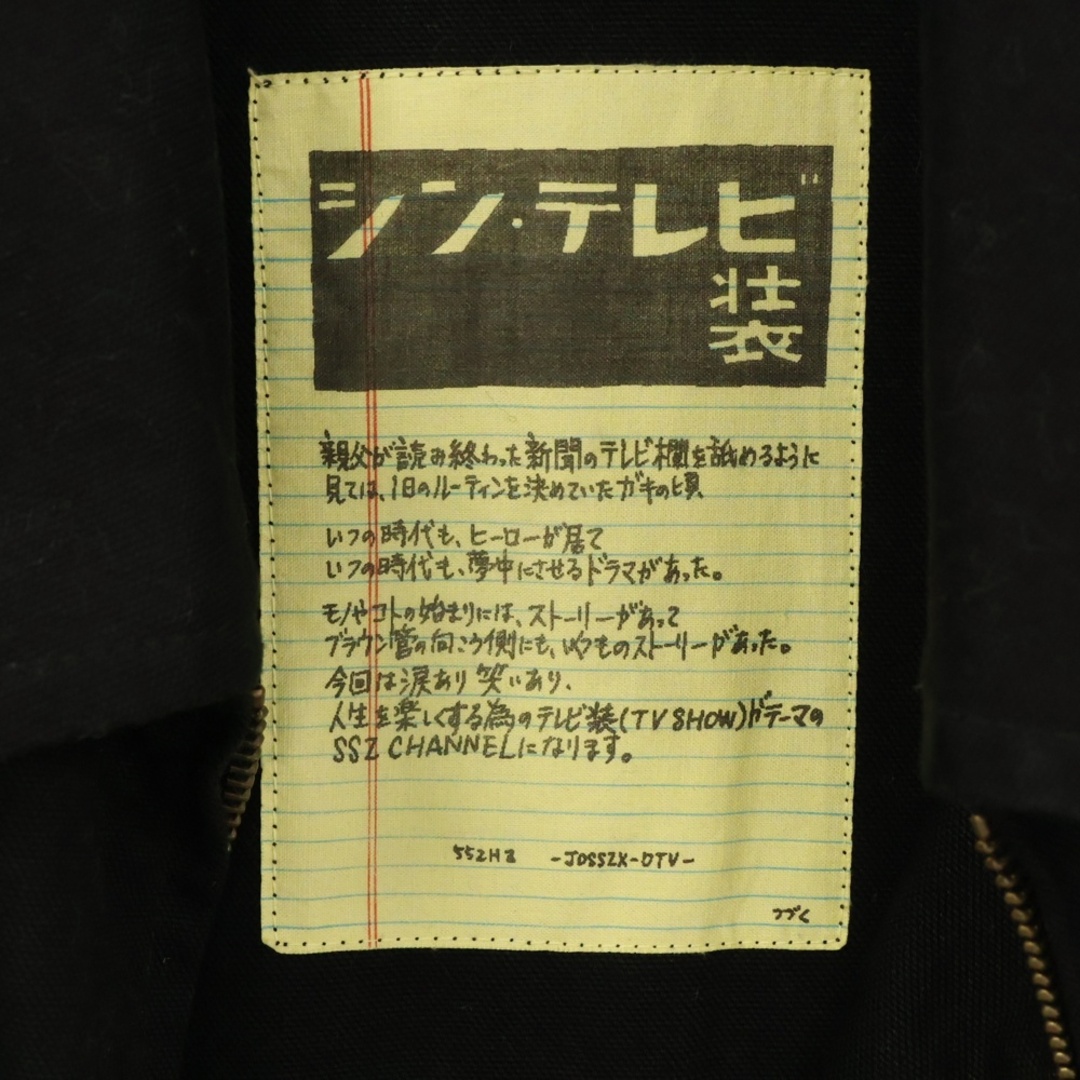 シン・テレビ
装
親父が読み終わった新聞のテレビ欄を舐めるように
見ては、1日のルーティンを決めていたガキの頃
いつの時代も、ヒーローが居て
いつの時代も、夢中にさせるドラマがあった。
モノやコトの始まりには、ストーリーがあって
ブラウン管の向こう側にも、いつものストーリーがあった。
今回は涙あり笑いあり、
人生を楽しくする為のテレビ装(TV SHOW)がテーマの
SSZ CHANNELになります。
SSZHZ -JOSSZX-DTV-
つづく